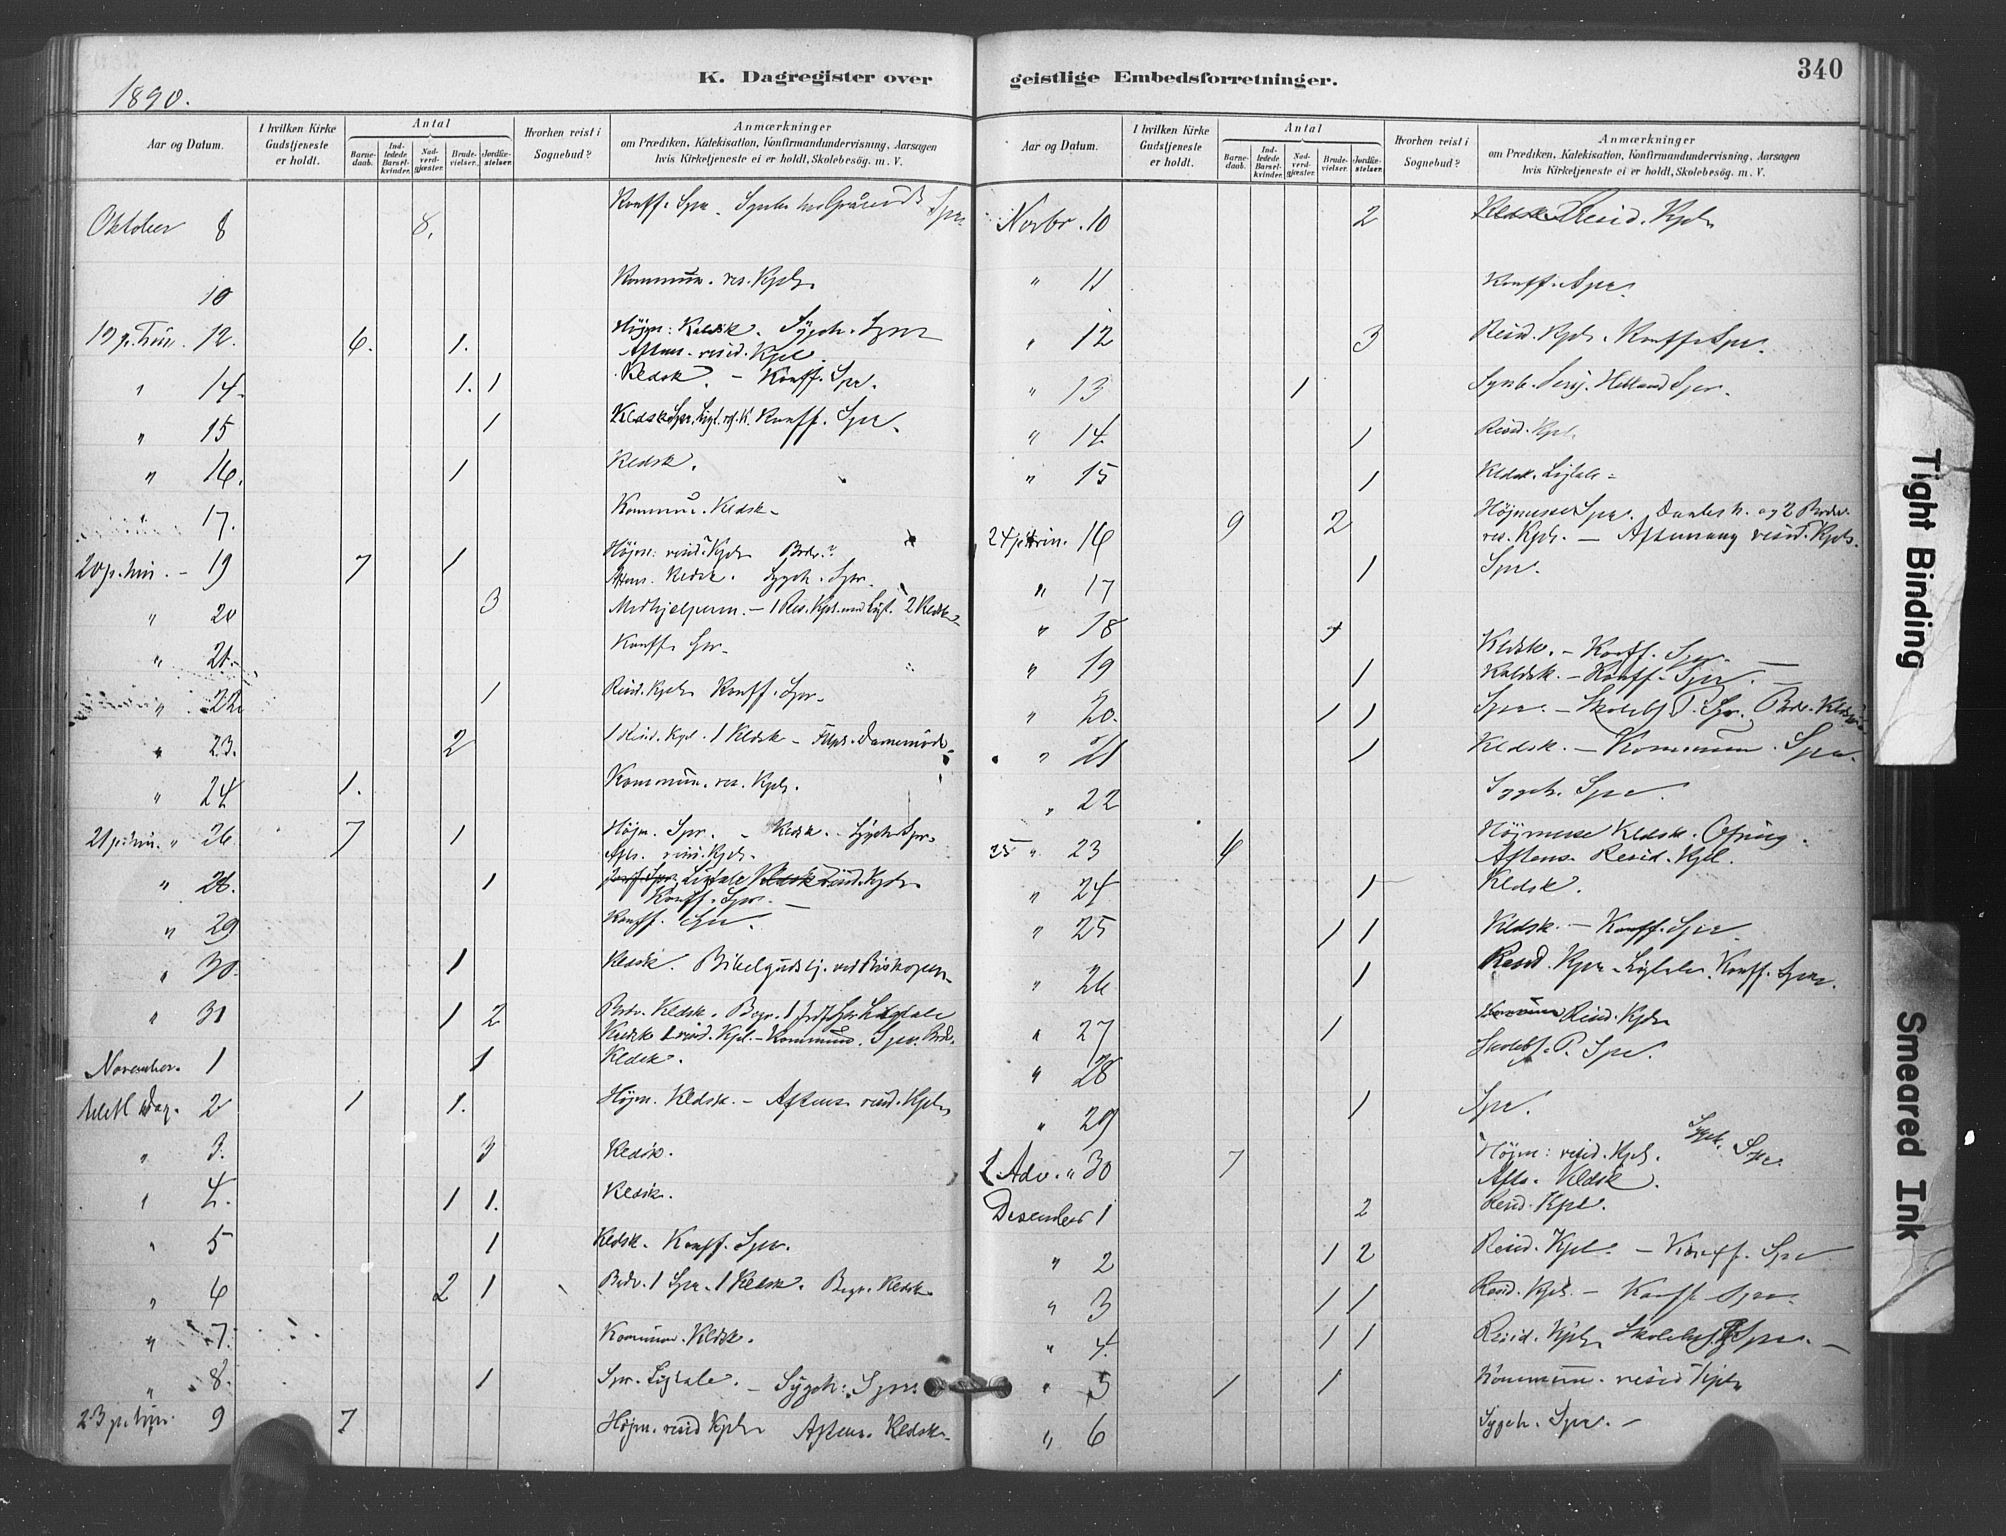 1890.
K. Dagregister over geistlige Embedsforretninger.
340
Aar og Datum.
I hvilken Kirke Gudstjeneste er holdt.
Antal
Barne-daab.
Ind-ledede Barsel-kvinder.
Nad-verd-gjæster.
Brude-vielser.
Jordfæ-stelser.
Hvorhen reist i Sognebud?
Anmærkninger
om Prædiken, Katekisation, Konfirmandundervisning, Aarsagen
hvis Kirketjeneste ei er holdt, Skolebesög. m. V.
Oktober 8 8. Konff. Spr.
10 Kommun. res. Kpl.
19 p. Trin. 12. 6. 1. Højm: Kldsk. Sygeh. Spr
Aftens. resid. Kpl.
" 14. 1. 1 Kldsk. – Konff. Spr.
" 15 1 Konff. Spr.
" 16. 1 Kldsk.
" 17. Kommun. Kldsk.
20 p. trin. – 19 7 1 Højm: resid. Kpl. Brdv.
Aftens. Kldsk. Sygeh. Spr.
" 20 3 Medhjelperm. – 1 Res. Kpl. med Ligt. 2 Kldsk.
" 21. Konff. Spr.
" 22 1 Resid. Kpl. Konff. Spr.
" 23. 2 1 Resid. Kpl. 1 Kldsk –
" 24 1. Kommun. res. Kpl.
21 p. trin. " 26. 7 1 Højm. Spr. – Kldsk. – Sygeh. Spr.
Afts. resid. Kpl.
" 28. 1 Ligtale resid. Kpl.
Konff. Spr. –
" 29 Konff. Spr.
" 30. 1 Kldsk. Bibelgudstj. ved Biskopen.
" 31 1 2 Brdv. Kldsk. Begr. 1 Ligtale
Kldsk 1 resid. Kpl. – Kommun. Spr. Brdv.
November. 1 1 Kldsk.
Dag. 2 1 1. Højm. Kldsk. – Aftens. resid. Kpl.
" 3. 3 Kldsk.
" 4. 1 1. Kldsk.
" 5 1 Kldsk. Konff. Spr.
" 6 2 1 Brdv. 1 Spr. 1 Kldsk. Begr. Kldsk.
" 7. Kommun. Kldsk.
" 8. 1 Spr. Ligtale. – Sygeh: Spr.
23 p. trin. 9 7 Højm. resid Kpl. Aftens. Kldsk.
Aar og Datum.
I hvilken Kirke Gudstjeneste er holdt.
Antal
Barne-daab.
Ind-ledede Barsel-kvinder.
Nad-verd-gjæster.
Brude-vielser.
Jordfæ-stelser.
Hvorhen reist i Sognebud?
Anmærkninger
om Prædiken, Katekisation, Konfirmandundervisning, Aarsagen
hvis Kirketjeneste ei er holdt, Skolebesög. m. V.
Novbr. 10 2 Resid. Kpl.
" 11 Konff. Spr.
" 12 3 Resid. Kpl. Konff. Spr.
" 13 1 Helland Spr.
" 14. 1 Resid. Kpl.
" 15 1 Kldsk. Ligtale
24 p. trin. 16 9 2 Højmesse Spr. og 2 Brdv.
res. Kpl. – Aftensang resid. Kpl.
" 17 1 Spr.
" 18 Kldsk. – Konff. Spr. –
" 19 1 Kldsk. – Konff. Spr. –
" 20. 1 1 Spr. – Skoleb. P. Spr. Brdv. Kldsk.
" 21 1 Kldsk. – Kommun. Spr.
" 22 Sygeh. Spr.
25 " 23 4 Højmesse Kldsk. Ofring.
Aftens. Resid. Kpl.
" 24 1 Kldsk.
" 25 1 1 Kldsk. – Konff. Spr.
" 26 1 Resid. Kpl. Ligtale. Konff. Spr.
" 27 1 Resid. Kpl.
" 28 Skoleb. P. Spr.
" 29 1 Spr.
1 Adv. " 30 7 Højm: resid. Kpl. Sygeh. Spr.
Afts. Kldsk.
Desember 1 2 Resid. Kpl.
" 2 1 2 Resid. Kpl. – Konff. Spr
" 3 1 1 Resid. Kpl. – Konff Spr.
" 4. 1 1 Resid. Kpl. Spr. –
" 5 1 1 Kommun. resid Kpl.
" 6 Sygeh. Spr. –
Tight Binding
Smeared Ink